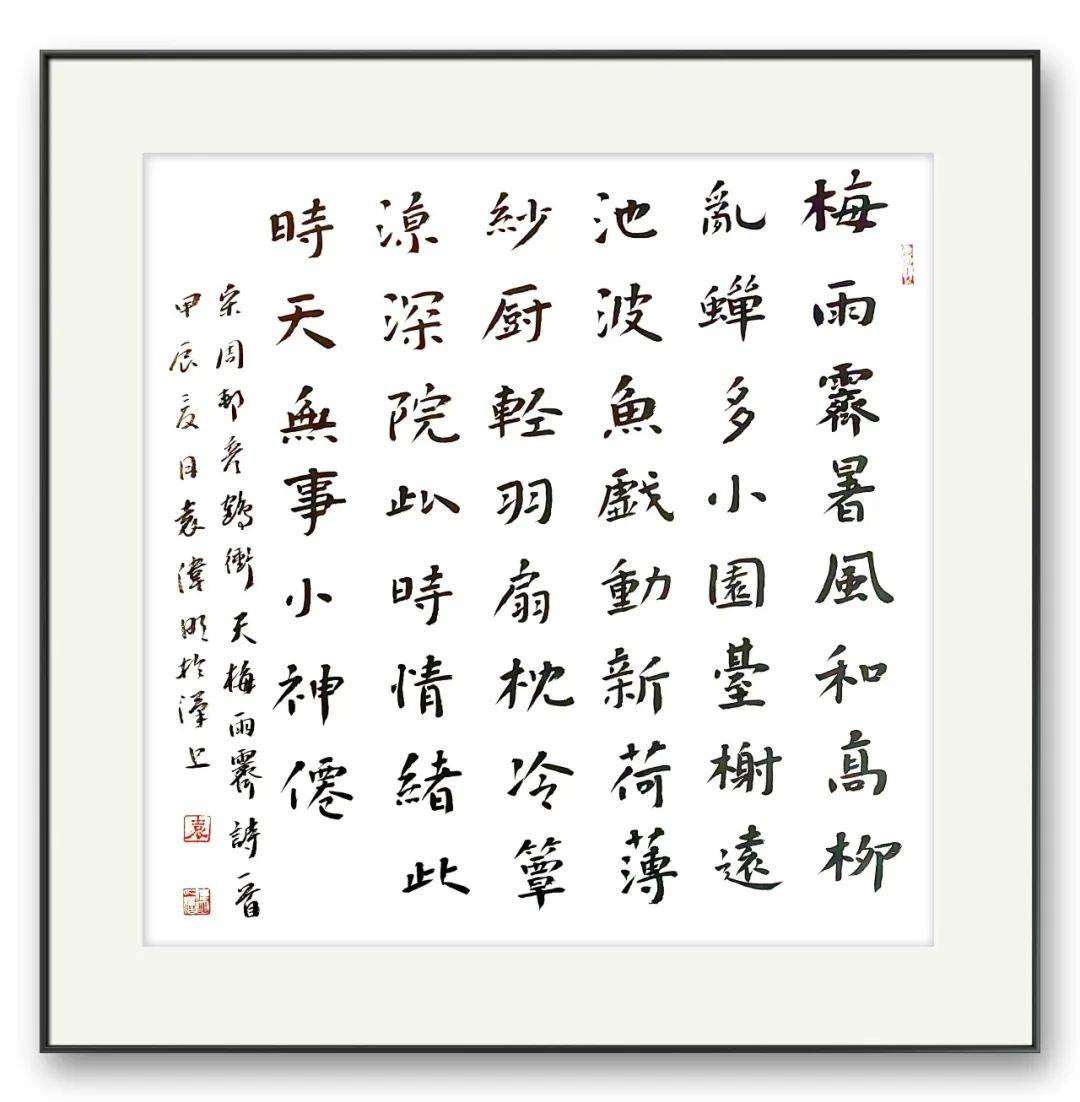 梅雨霽暑風和高柳
亂蟬多小園臺榭遠
池波魚戲動新荷薄
紗厨軽羽扇枕冷簟
涼深院此時情緒此
時天無事小神僊
宋周邦彥鶴衝天梅雨霽詩一首
甲辰夏月袁偉明於漢上
袁